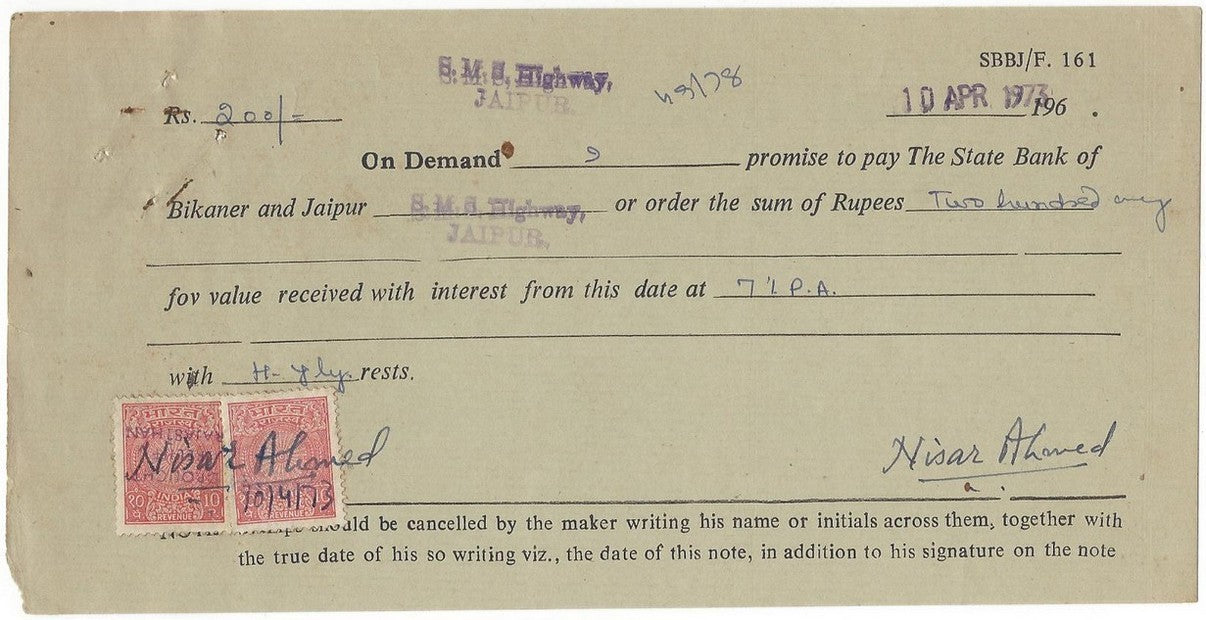 SBBJ/F. 161
S. M. S. Highway,
JAIPUR.
Rs. 200/-
10 APR 1973 196 .
On Demand promise to pay The State Bank of
Bikaner and Jaipur S. M. S. Highway, or order the sum of Rupees Two hundred only
JAIPUR.
fov value received with interest from this date at 7% P.A.
with H-yly. rests.
भारत भारत
RAJASTHAN
Nisar Ahmed Nisar Ahmed
INDIA 10
10/4/73
REVENUE REVENUE
should be cancelled by the maker writing his name or initials across them, together with
the true date of his so writing viz., the date of this note, in addition to his signature on the note